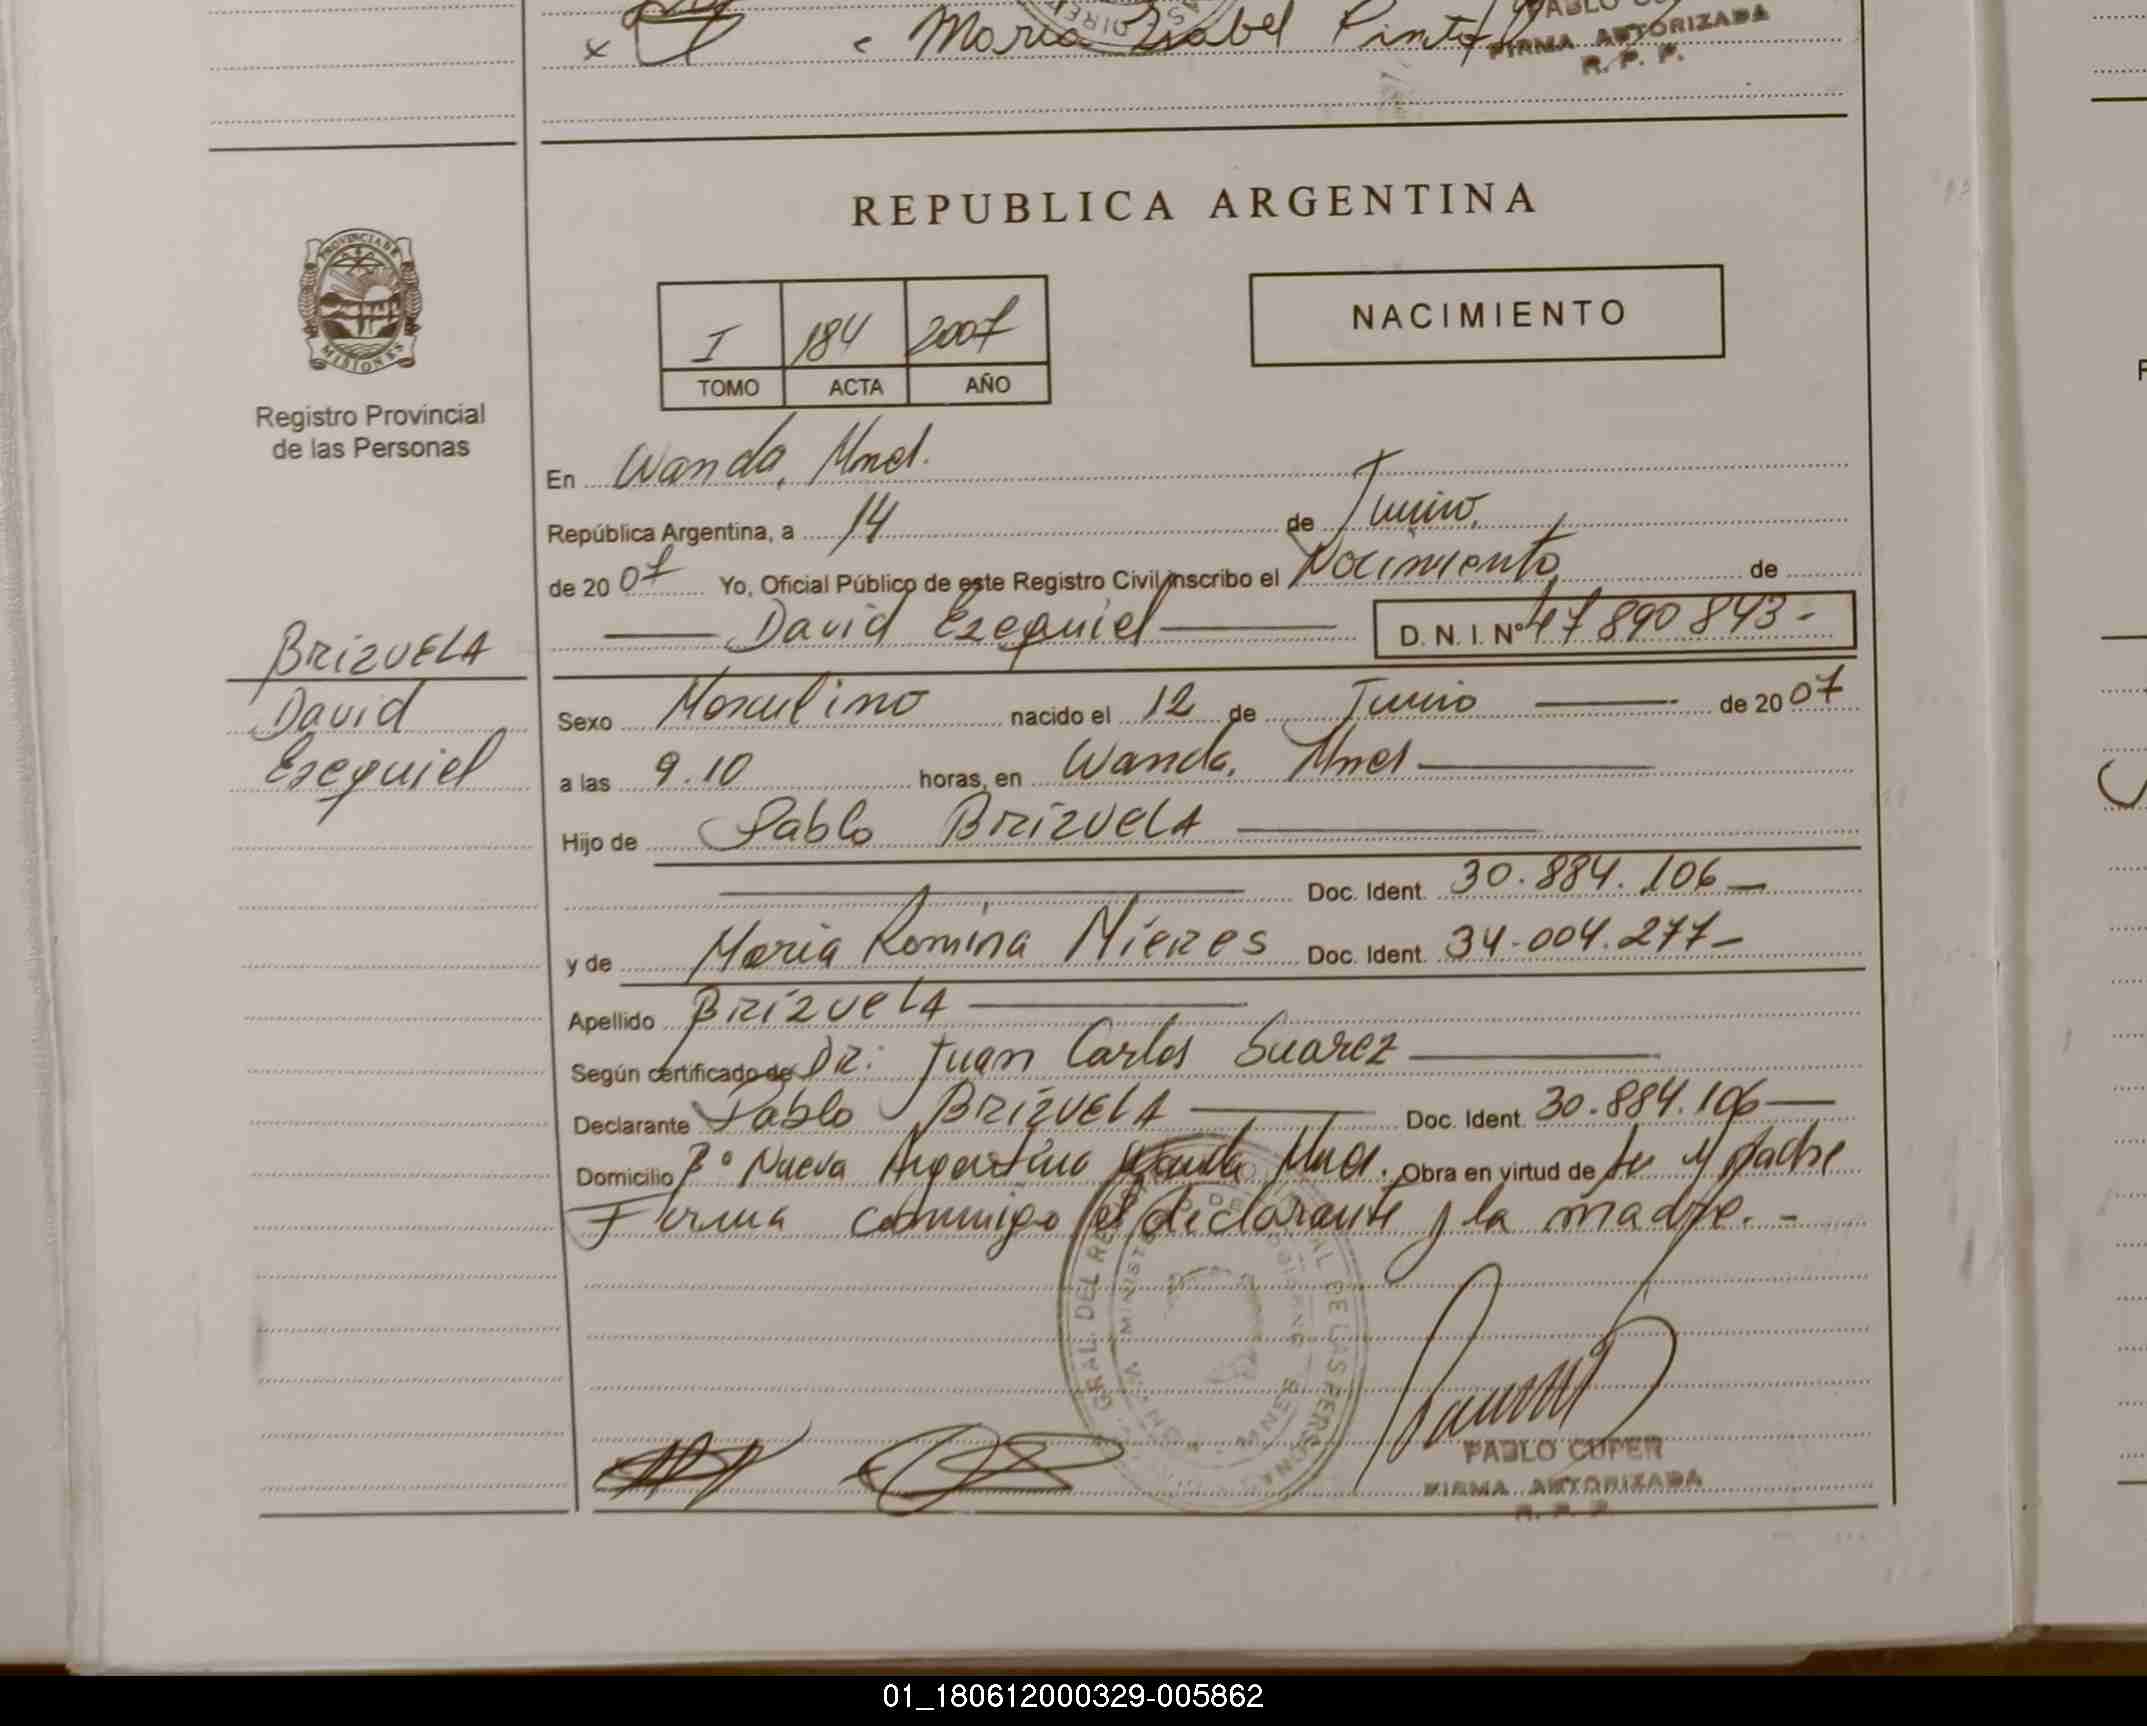 x c María Isabel Pinto
FIRMA AUTORIZADA
R. P. P.
REPUBLICA ARGENTINA
PROVINCIA DE
MISIONES
Registro Provincial
de las Personas
I 184 2007
TOMO ACTA AÑO
NACIMIENTO
En Wanda, Mnes.
República Argentina, a 14 de Junio,
de 20 07 Yo, Oficial Público de este Registro Civil inscribo el Nacimiento, de
David Ezequiel D. N. I. Nº 47 890 843-
BRIZUELA
David
Ezequiel
Sexo Masculino nacido el 12 de Junio de 20 07
a las 9.10 horas, en Wanda, Mnes
Hijo de Pablo BRIZUELA
Doc. Ident. 30.884.106
y de María Romina Mieres Doc. Ident. 34.004.277-
Apellido BRIZUELA
Según certificado de DR: Juan Carlos Suarez
Declarante Pablo BRIZUELA Doc. Ident. 30.884.106
Domicilio Bº Nueva Argentina Wanda Mnes. Obra en virtud de ser el padre
Firma conmigo el declarante y la madre. -
PABLO CUPER
FIRMA AUTORIZADA
R. P. P.
01_180612000329-005862